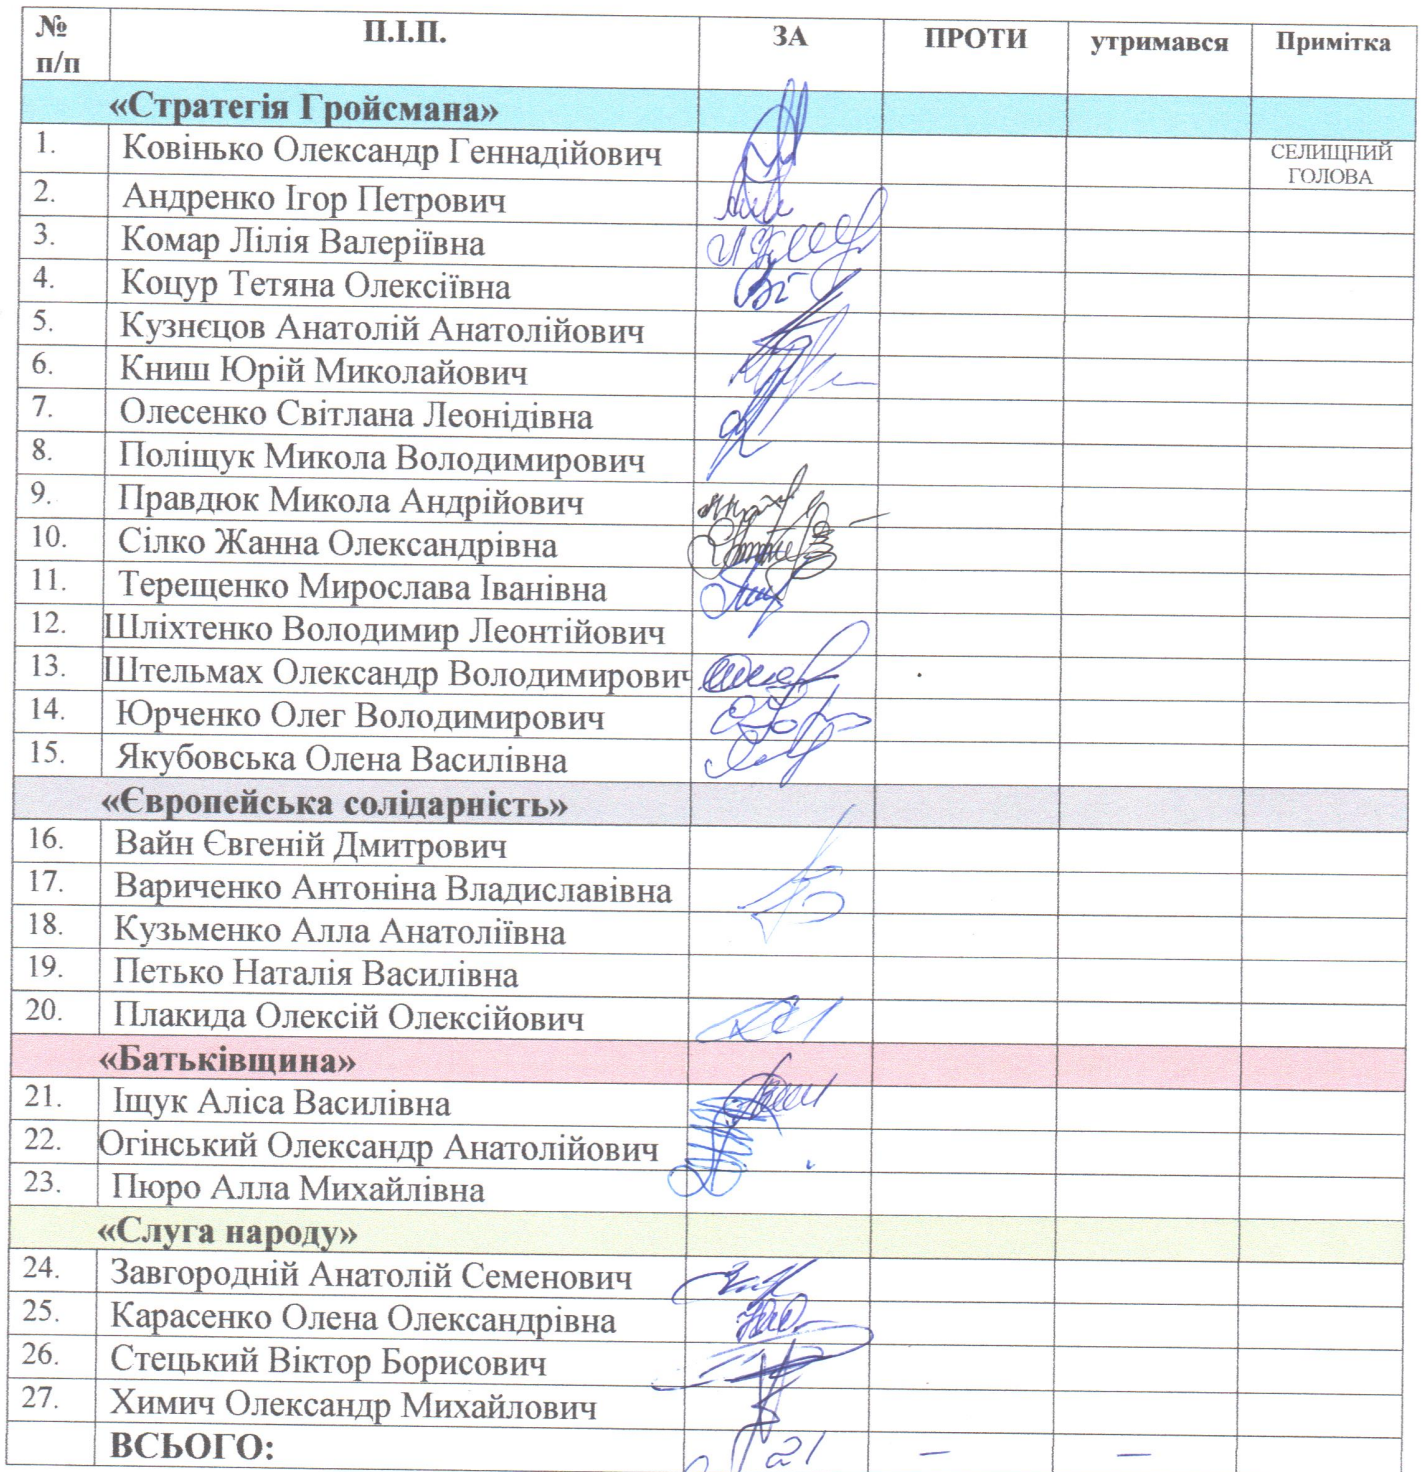 № П.І.П. ЗА ПРОТИ утримався Примітка
п/п
«Стратегія Гройсмана»
1. Ковінько Олександр Геннадійович СЕЛИЩНИЙ
ГОЛОВА
2. Андренко Ігор Петрович
3. Комар Лілія Валеріївна
4. Коцур Тетяна Олексіївна
5. Кузнєцов Анатолій Анатолійович
6. Книш Юрій Миколайович
7. Олесенко Світлана Леонідівна
8. Поліщук Микола Володимирович
9. Правдюк Микола Андрійович
10. Сілко Жанна Олександрівна
11. Терещенко Мирослава Іванівна
12. Шліхтенко Володимир Леонтійович
13. Штельмах Олександр Володимирович
14. Юрченко Олег Володимирович
15. Якубовська Олена Василівна
«Європейська солідарність»
16. Вайн Євгеній Дмитрович
17. Вариченко Антоніна Владиславівна
18. Кузьменко Алла Анатоліївна
19. Петько Наталія Василівна
20. Плакида Олексій Олексійович
«Батьківщина»
21. Іщук Аліса Василівна
22. Огінський Олександр Анатолійович
23. Пюро Алла Михайлівна
«Слуга народу»
24. Завгородній Анатолій Семенович
25. Карасенко Олена Олександрівна
26. Стецький Віктор Борисович
27. Химич Олександр Михайлович
ВСЬОГО: 21 — —